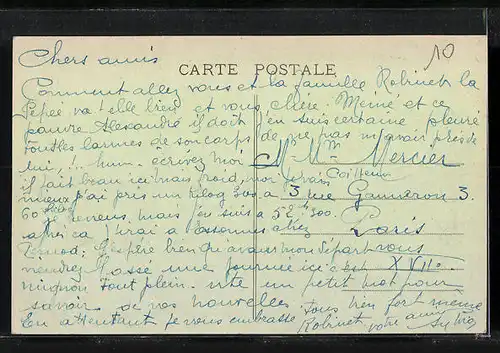 10
Chers amis
CARTE POSTALE
Comment allez vous et la famille Robinet la
Pépée va t'elle bien et vous chère Meine et ce
pauvre Alexandre il doit
j'en suis certaine pleuré
toutes les larmes de son corps
de ne pas m'avoir près de
lui, !... hum. écrivez moi
Mr Mme Mercier
Coiffeur
il fait beau ici mais froid, moi je vais
mieux j'ai pris un kilog 300 à
3 rue Gameron 3.
60 je reviens, mais j'en suis a 52k 300.
Paris
j'irai a
Pernod: j'espère bien qu'avant mon départ vous
viendrez passé une journée ici c'est
XVIII
mignon tout plein. vite un petit mot pour
savoir de vos nouvelles
En attendant je vous embrasse
tous bien fort même
Robinet votre amie